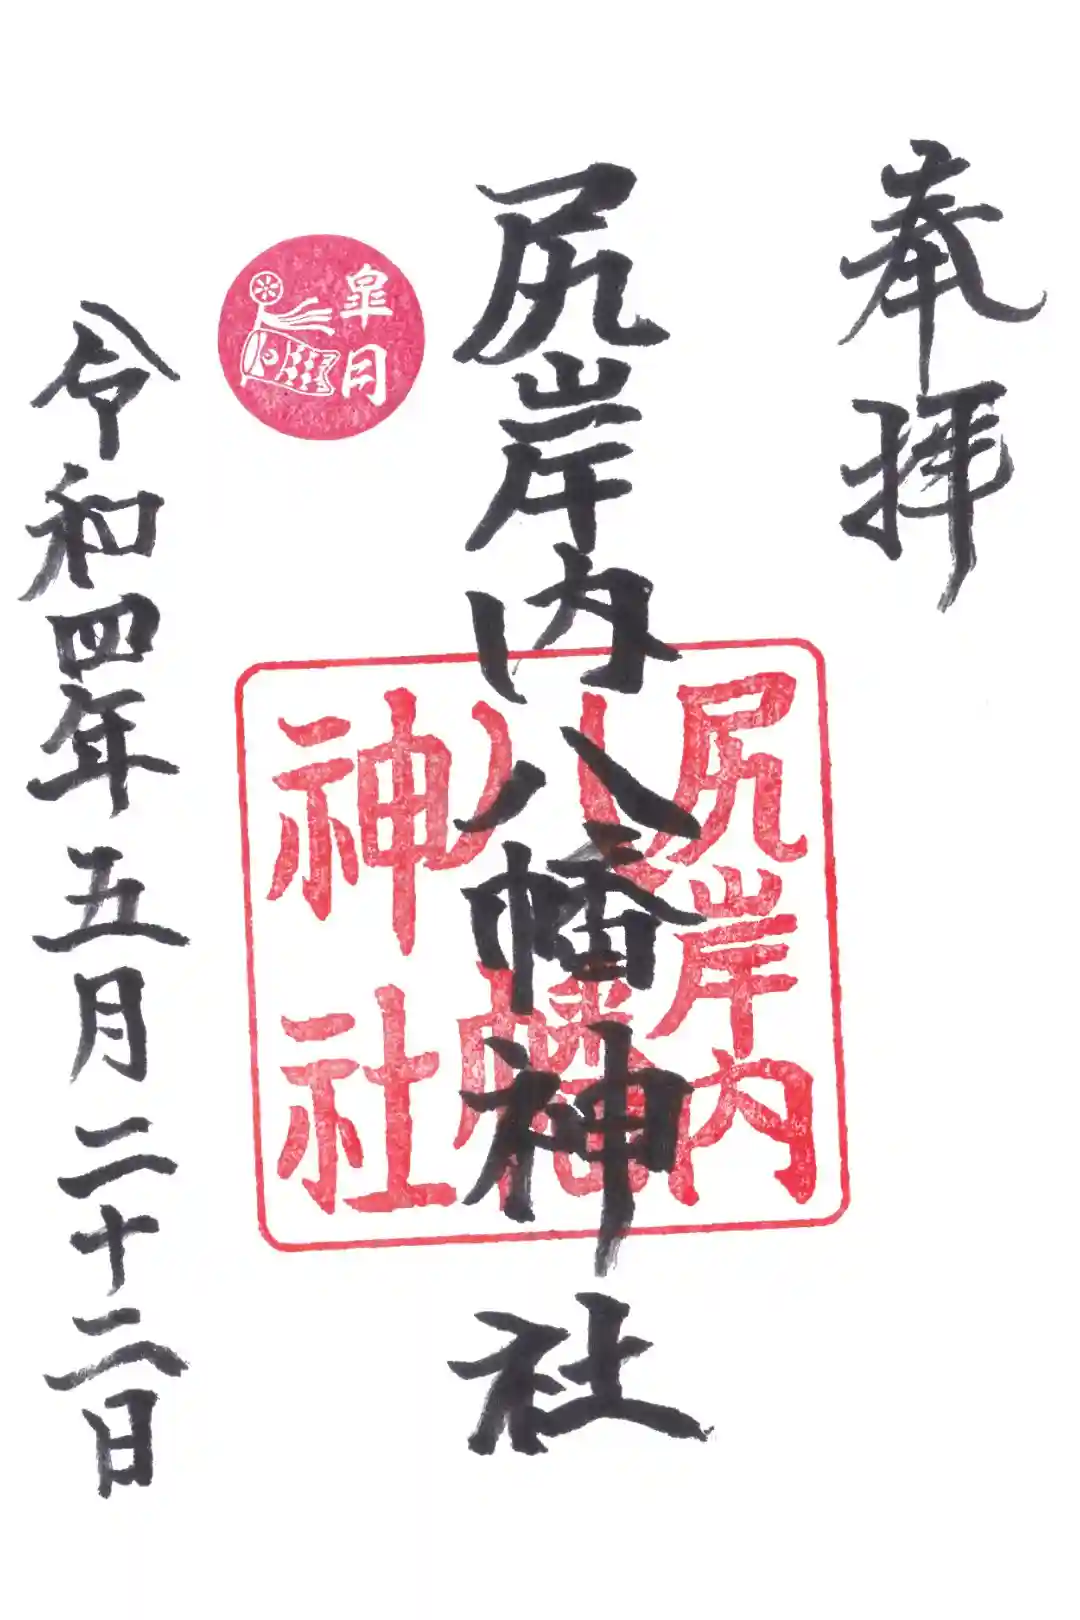 奉拝
尻岸内八幡神社
尻岸内
八幡
神社
皐月
令和四年五月二十二日